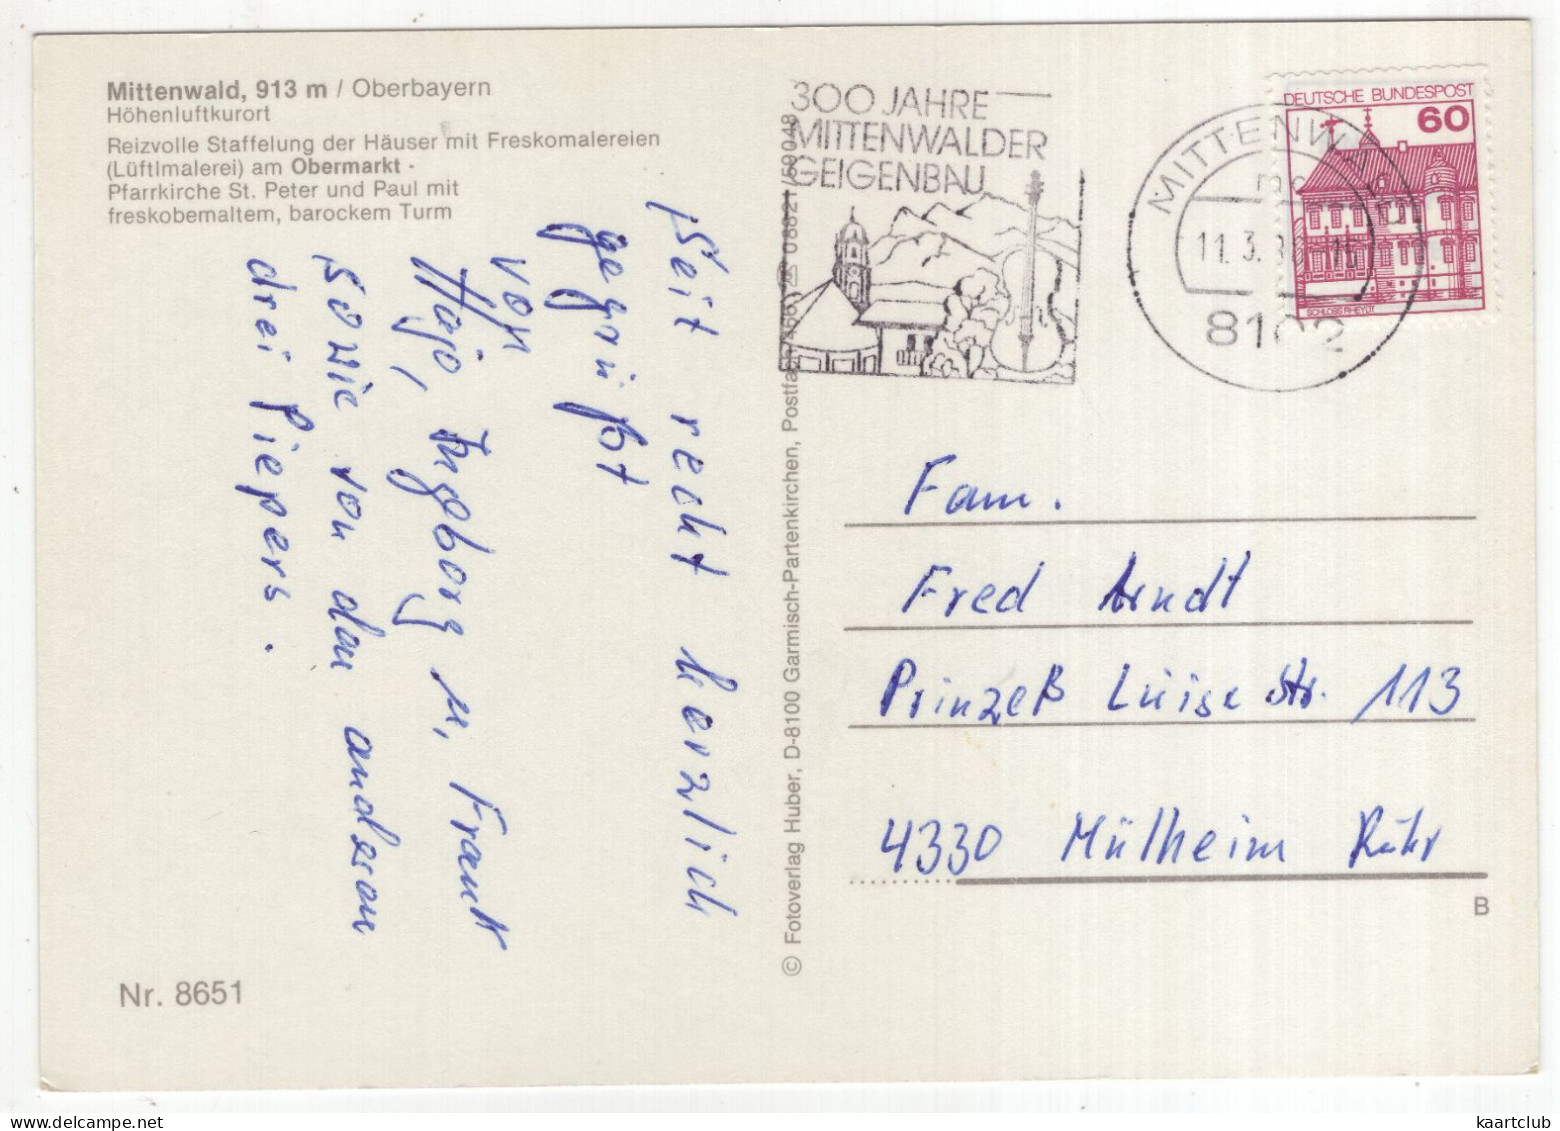 Mittenwald, 913 m / Oberbayern
Höhenluftkurort
Reizvolle Staffelung der Häuser mit Freskomalereien
(Lüftlmalerei) am Obermarkt -
Pfarrkirche St. Peter und Paul mit
freskobemaltem, barockem Turm
Seit recht herzlich
gegrüßt
von
Hajo, Ingborg u. Frank
sowie von den anderen
drei Piepers.
Nr. 8651
© Fotoverlag Huber, D-8100 Garmisch-Partenkirchen, Postfach
08821/59048
300 JAHRE
MITTENWALDER
GEIGENBAU
MITTENW
11.3.
8102
DEUTSCHE BUNDESPOST
60
SCHLOSS RHEYDT
Fam.
Fred Arndt
Prinzeß Luise Str. 113
4330 Mülheim Ruhr
B
kaartclub